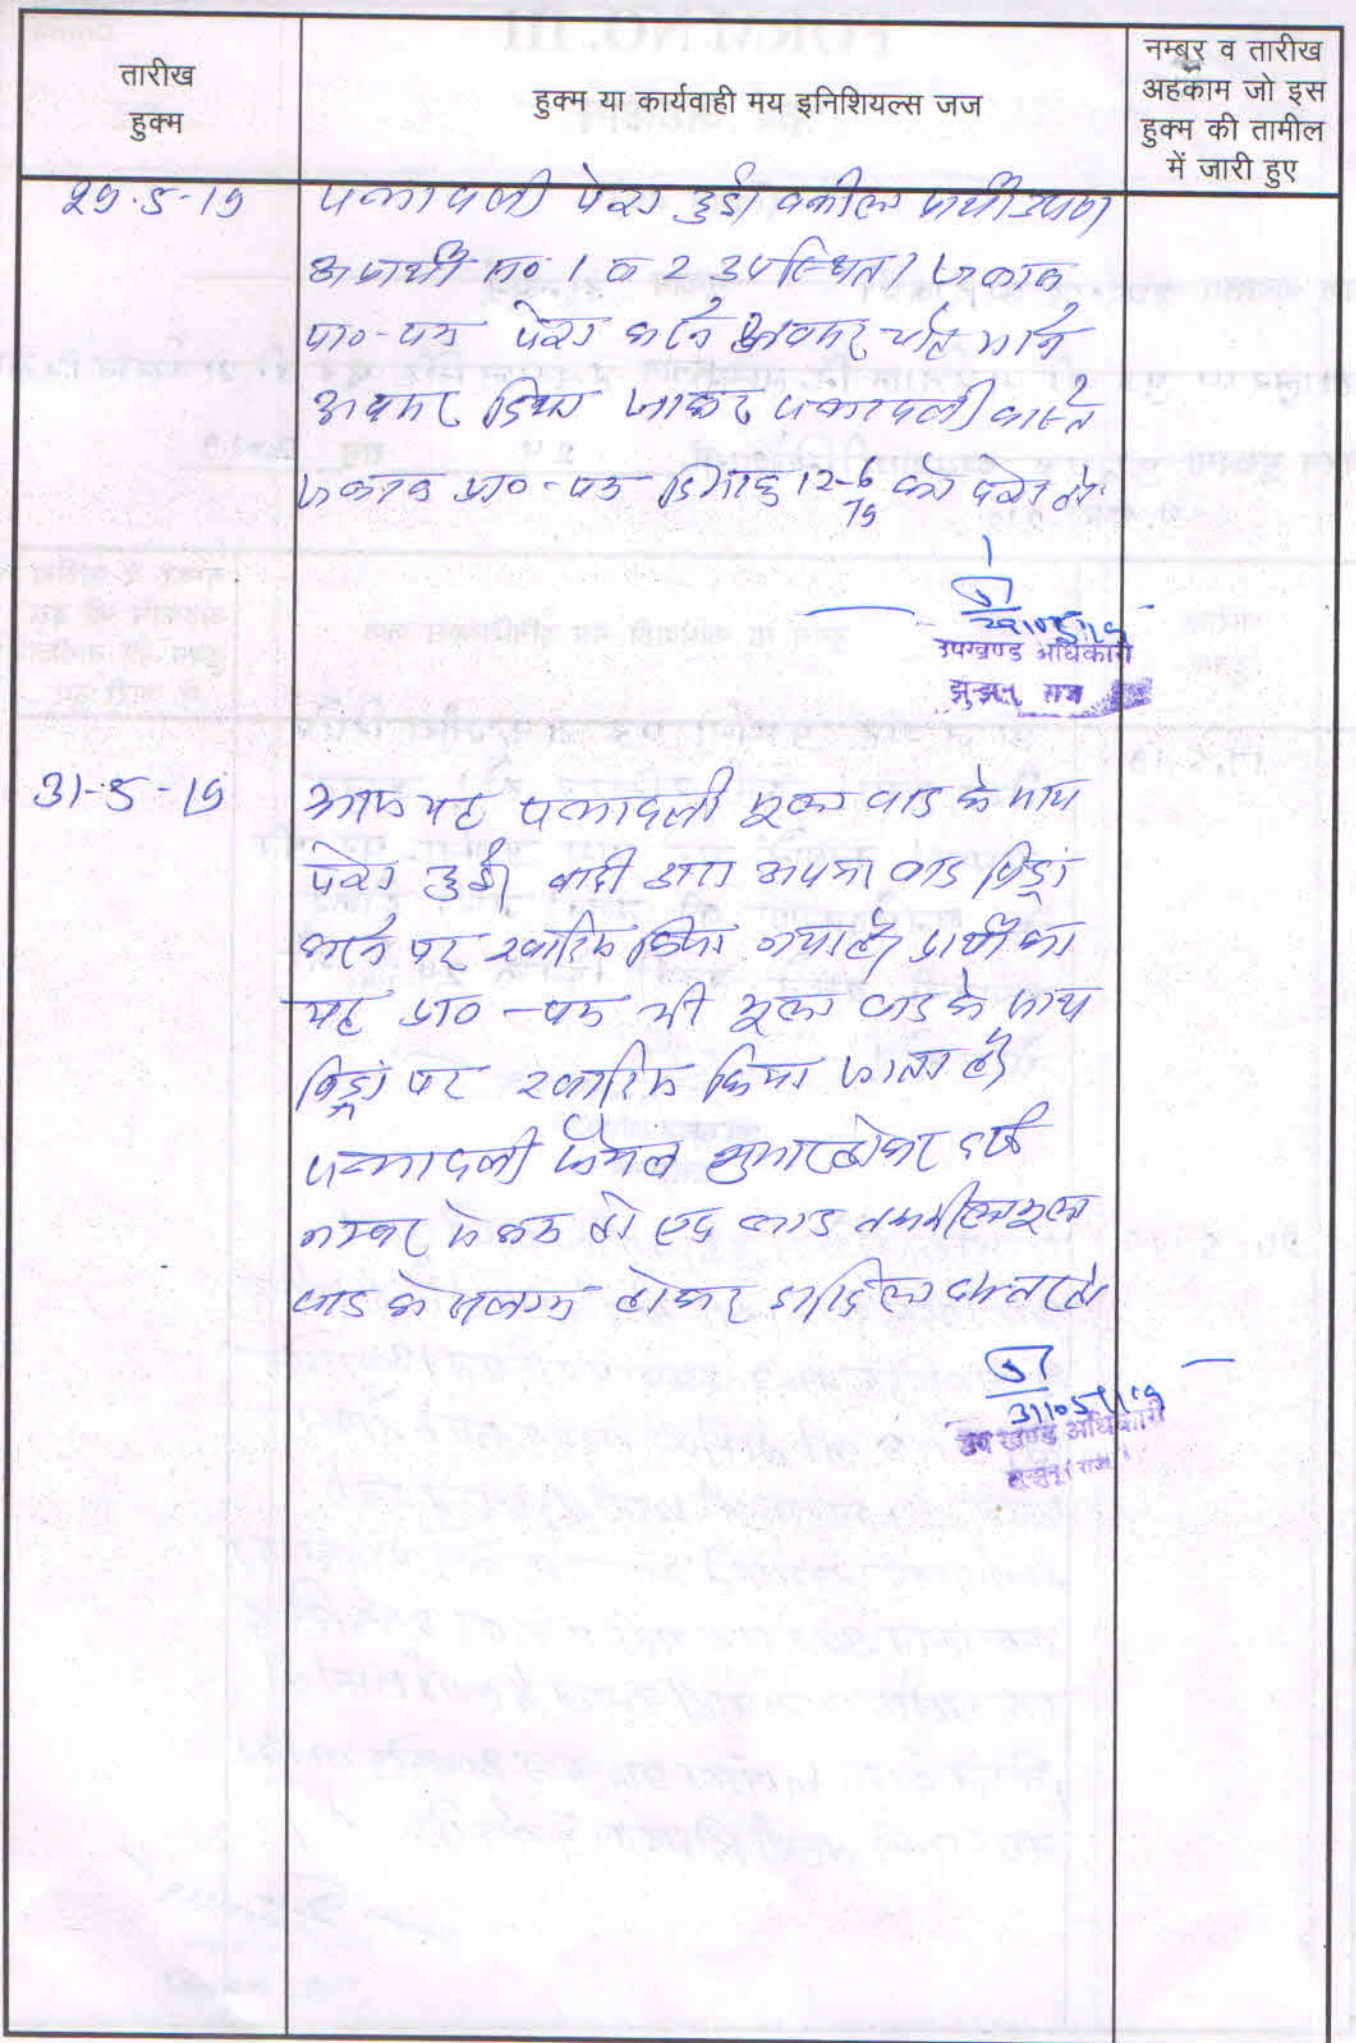 तारीख
हुक्म
हुक्म या कार्यवाही मय इनिशियल्स जज
नम्बर व तारीख
अहकाम जो इस
हुक्म की तामील
में जारी हुए
29-5-19
पत्रावली पेश हुई। वकील प्रार्थी उप०
अप्रार्थी सं० 1 व 2 उपस्थित। जवाब
प्रा०-पत्र पेश करने अवसर चाहे माने
अवसर दिया जाकर पत्रावली वास्ते
जवाब प्रा०-पत्र दिनांक 12-6
19 को पेश हो।
29/05/19
उपखण्ड अधिकारी
झुन्झुनू राज
31-5-19
आज यह पत्रावली मूल वाद के साथ
पेश हुई। वादी द्वारा अपना वाद विड्रा
करने पर खारिज किया गया है। प्रार्थी का
यह प्रा०-पत्र भी मूल वाद के साथ
विड्रा पर खारिज किया जाता है।
पत्रावली फैसल शुमार होकर दर्ज
नम्बर से कम हो एवं बाद तकमील मूल
वाद के संलग्न होकर दाखिल दफ्तर हो।
31/05/19
उप खण्ड अधिकारी
झुन्झुनू (राज.)